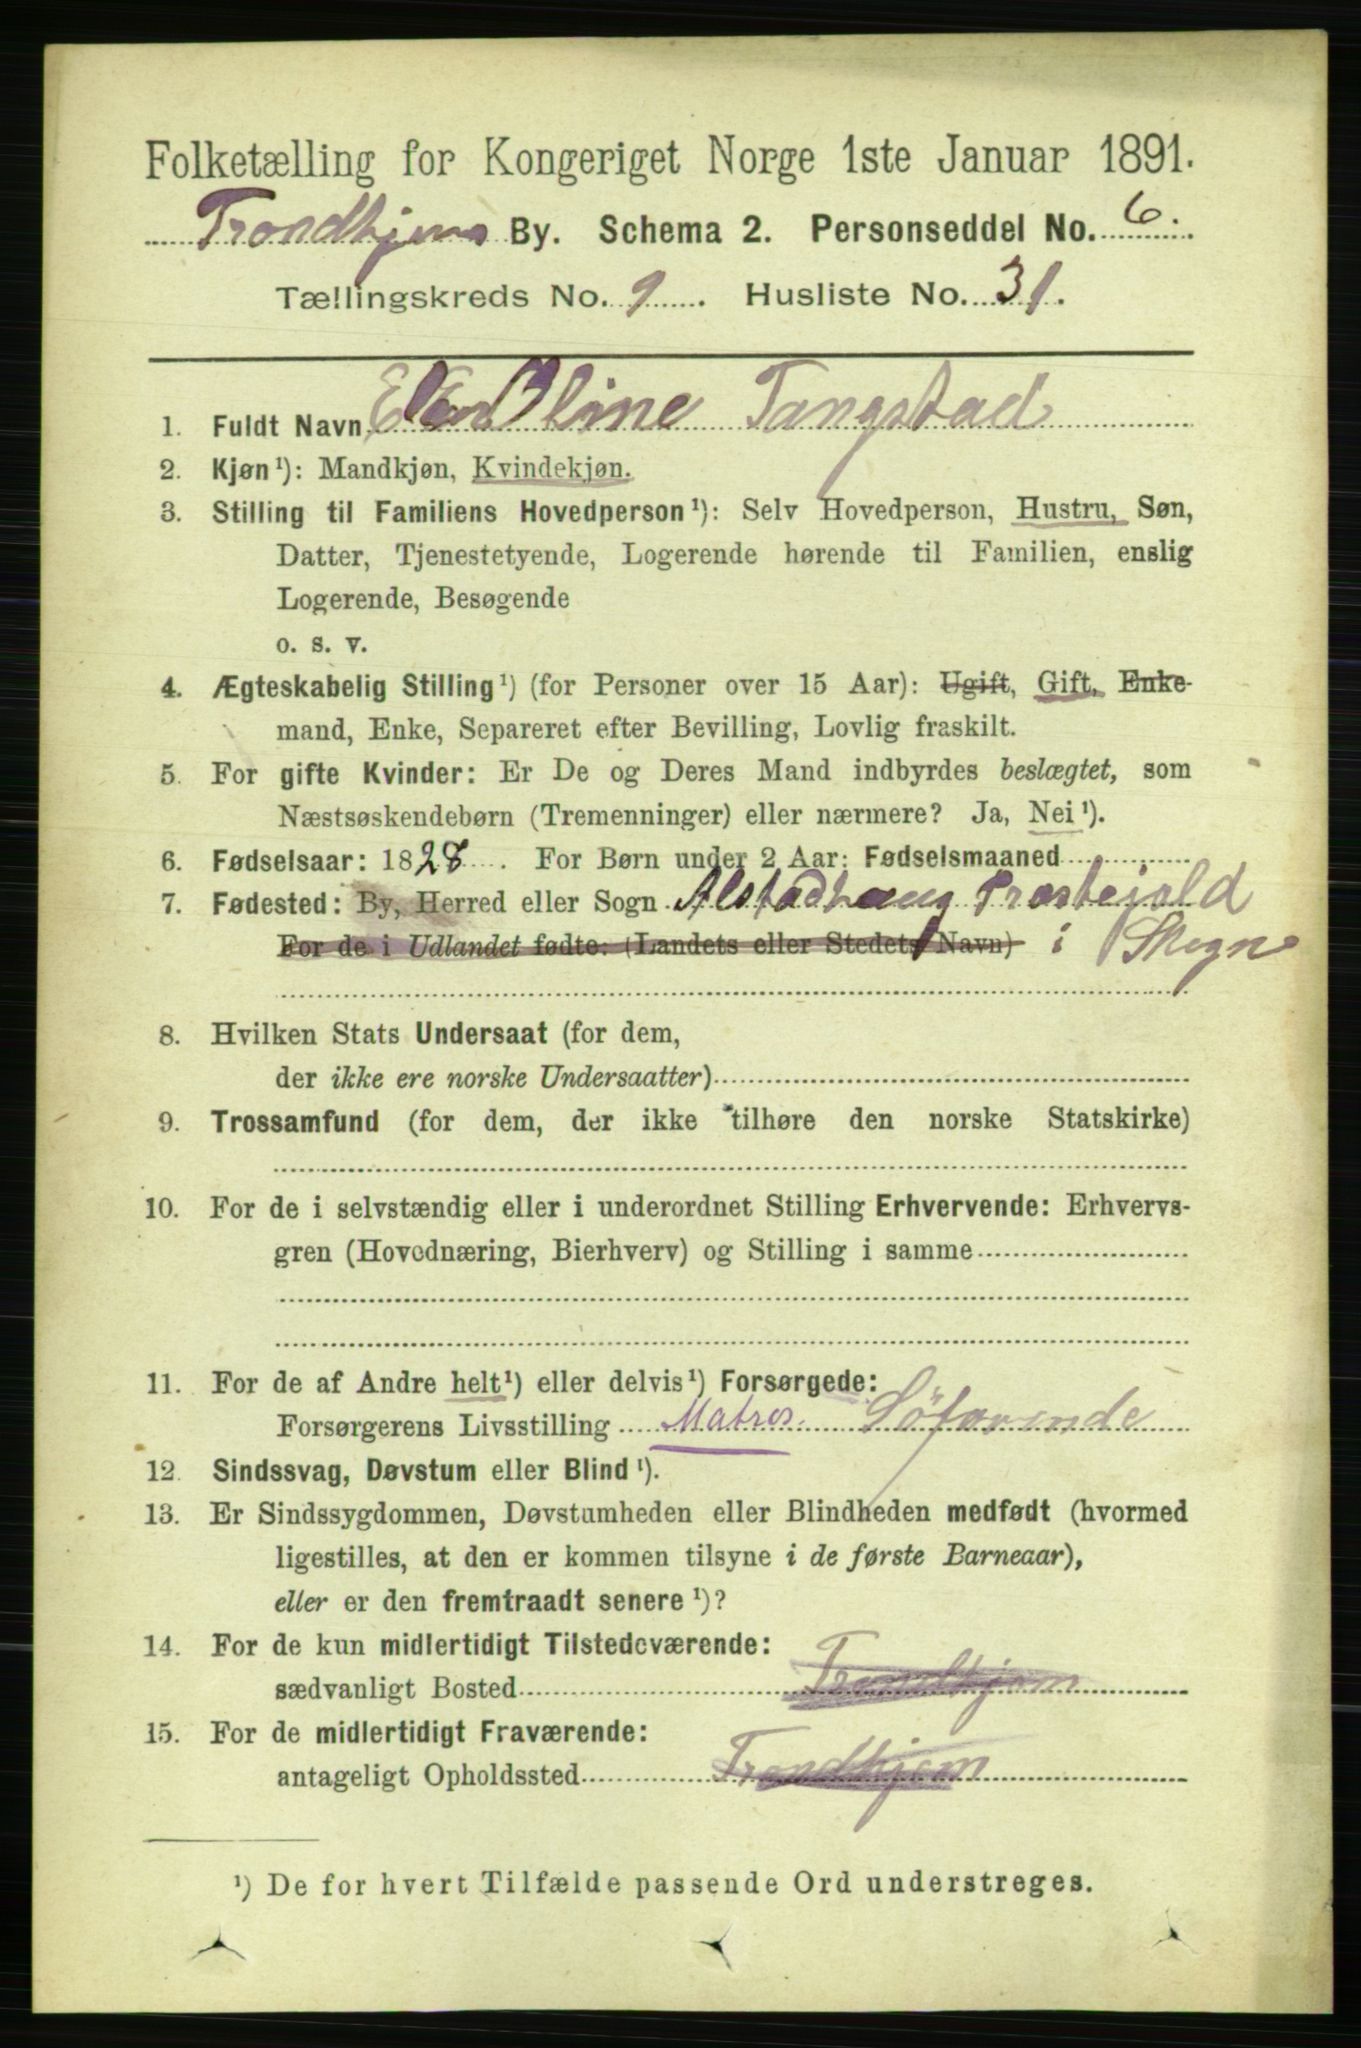 Folketælling for Kongeriget Norge 1ste Januar 1891.
Trondhjems By. Schema 2. Personseddel No. 6.
Tællingskreds No. 9. Husliste No. 31.
1. Fuldt Navn Oline Tangstad
2. Kjøn¹): Mandkjøn, Kvindekjøn.
3. Stilling til Familiens Hovedperson¹): Selv Hovedperson, Hustru, Søn,
Datter, Tjenestetyende, Logerende hørende til Familien, enslig
Logerende, Besøgende
o. s. v.
4. Ægteskabelig Stilling¹) (for Personer over 15 Aar): Ugift, Gift, Enke-
mand, Enke, Separeret efter Bevilling, Lovlig fraskilt.
5. For gifte Kvinder: Er De og Deres Mand indbyrdes beslægtet, som
Næstsøskendebørn (Tremenninger) eller nærmere? Ja, Nei¹).
6. Fødselsaar: 1828. For Børn under 2 Aar: Fødselsmaaned
7. Fødested: By, Herred eller Sogn Alstadhaug Præstejeld
For de i Udlandet fødte: (Landets eller Stedets Navn) i Skogn
8. Hvilken Stats Undersaat (for dem,
der ikke ere norske Undersaatter)
9. Trossamfund (for dem, der ikke tilhøre den norske Statskirke)
10. For de i selvstændig eller i underordnet Stilling Erhvervende: Erhvervs-
gren (Hovednæring, Bierhverv) og Stilling i samme
11. For de af Andre helt¹) eller delvis¹) Forsørgede:
Forsørgerens Livsstilling Matros. Söfarende
12. Sindssvag, Døvstum eller Blind¹).
13. Er Sindssygdommen, Døvstumheden eller Blindheden medfødt (hvormed
ligestilles, at den er kommen tilsyne i de første Barneaar),
eller er den fremtraadt senere¹)?
14. For de kun midlertidigt Tilstedeværende:
sædvanligt Bosted Trondhjem
15. For de midlertidigt Fraværende:
antageligt Opholdssted Trondhjem
¹) De for hvert Tilfælde passende Ord understreges.